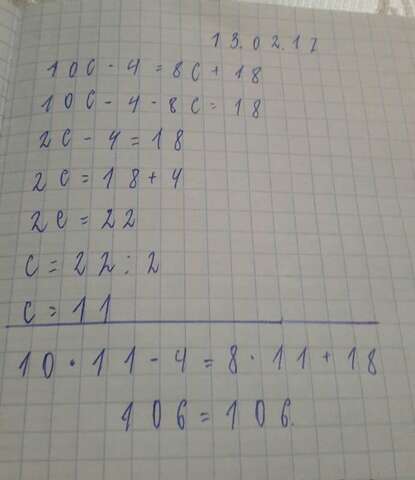 13.02.17
10c - 4 = 8c + 18
10c - 4 - 8c = 18
2c - 4 = 18
2c = 18 + 4
2c = 22
c = 22 : 2
c = 11
10 · 11 - 4 = 8 · 11 + 18
106 = 106.